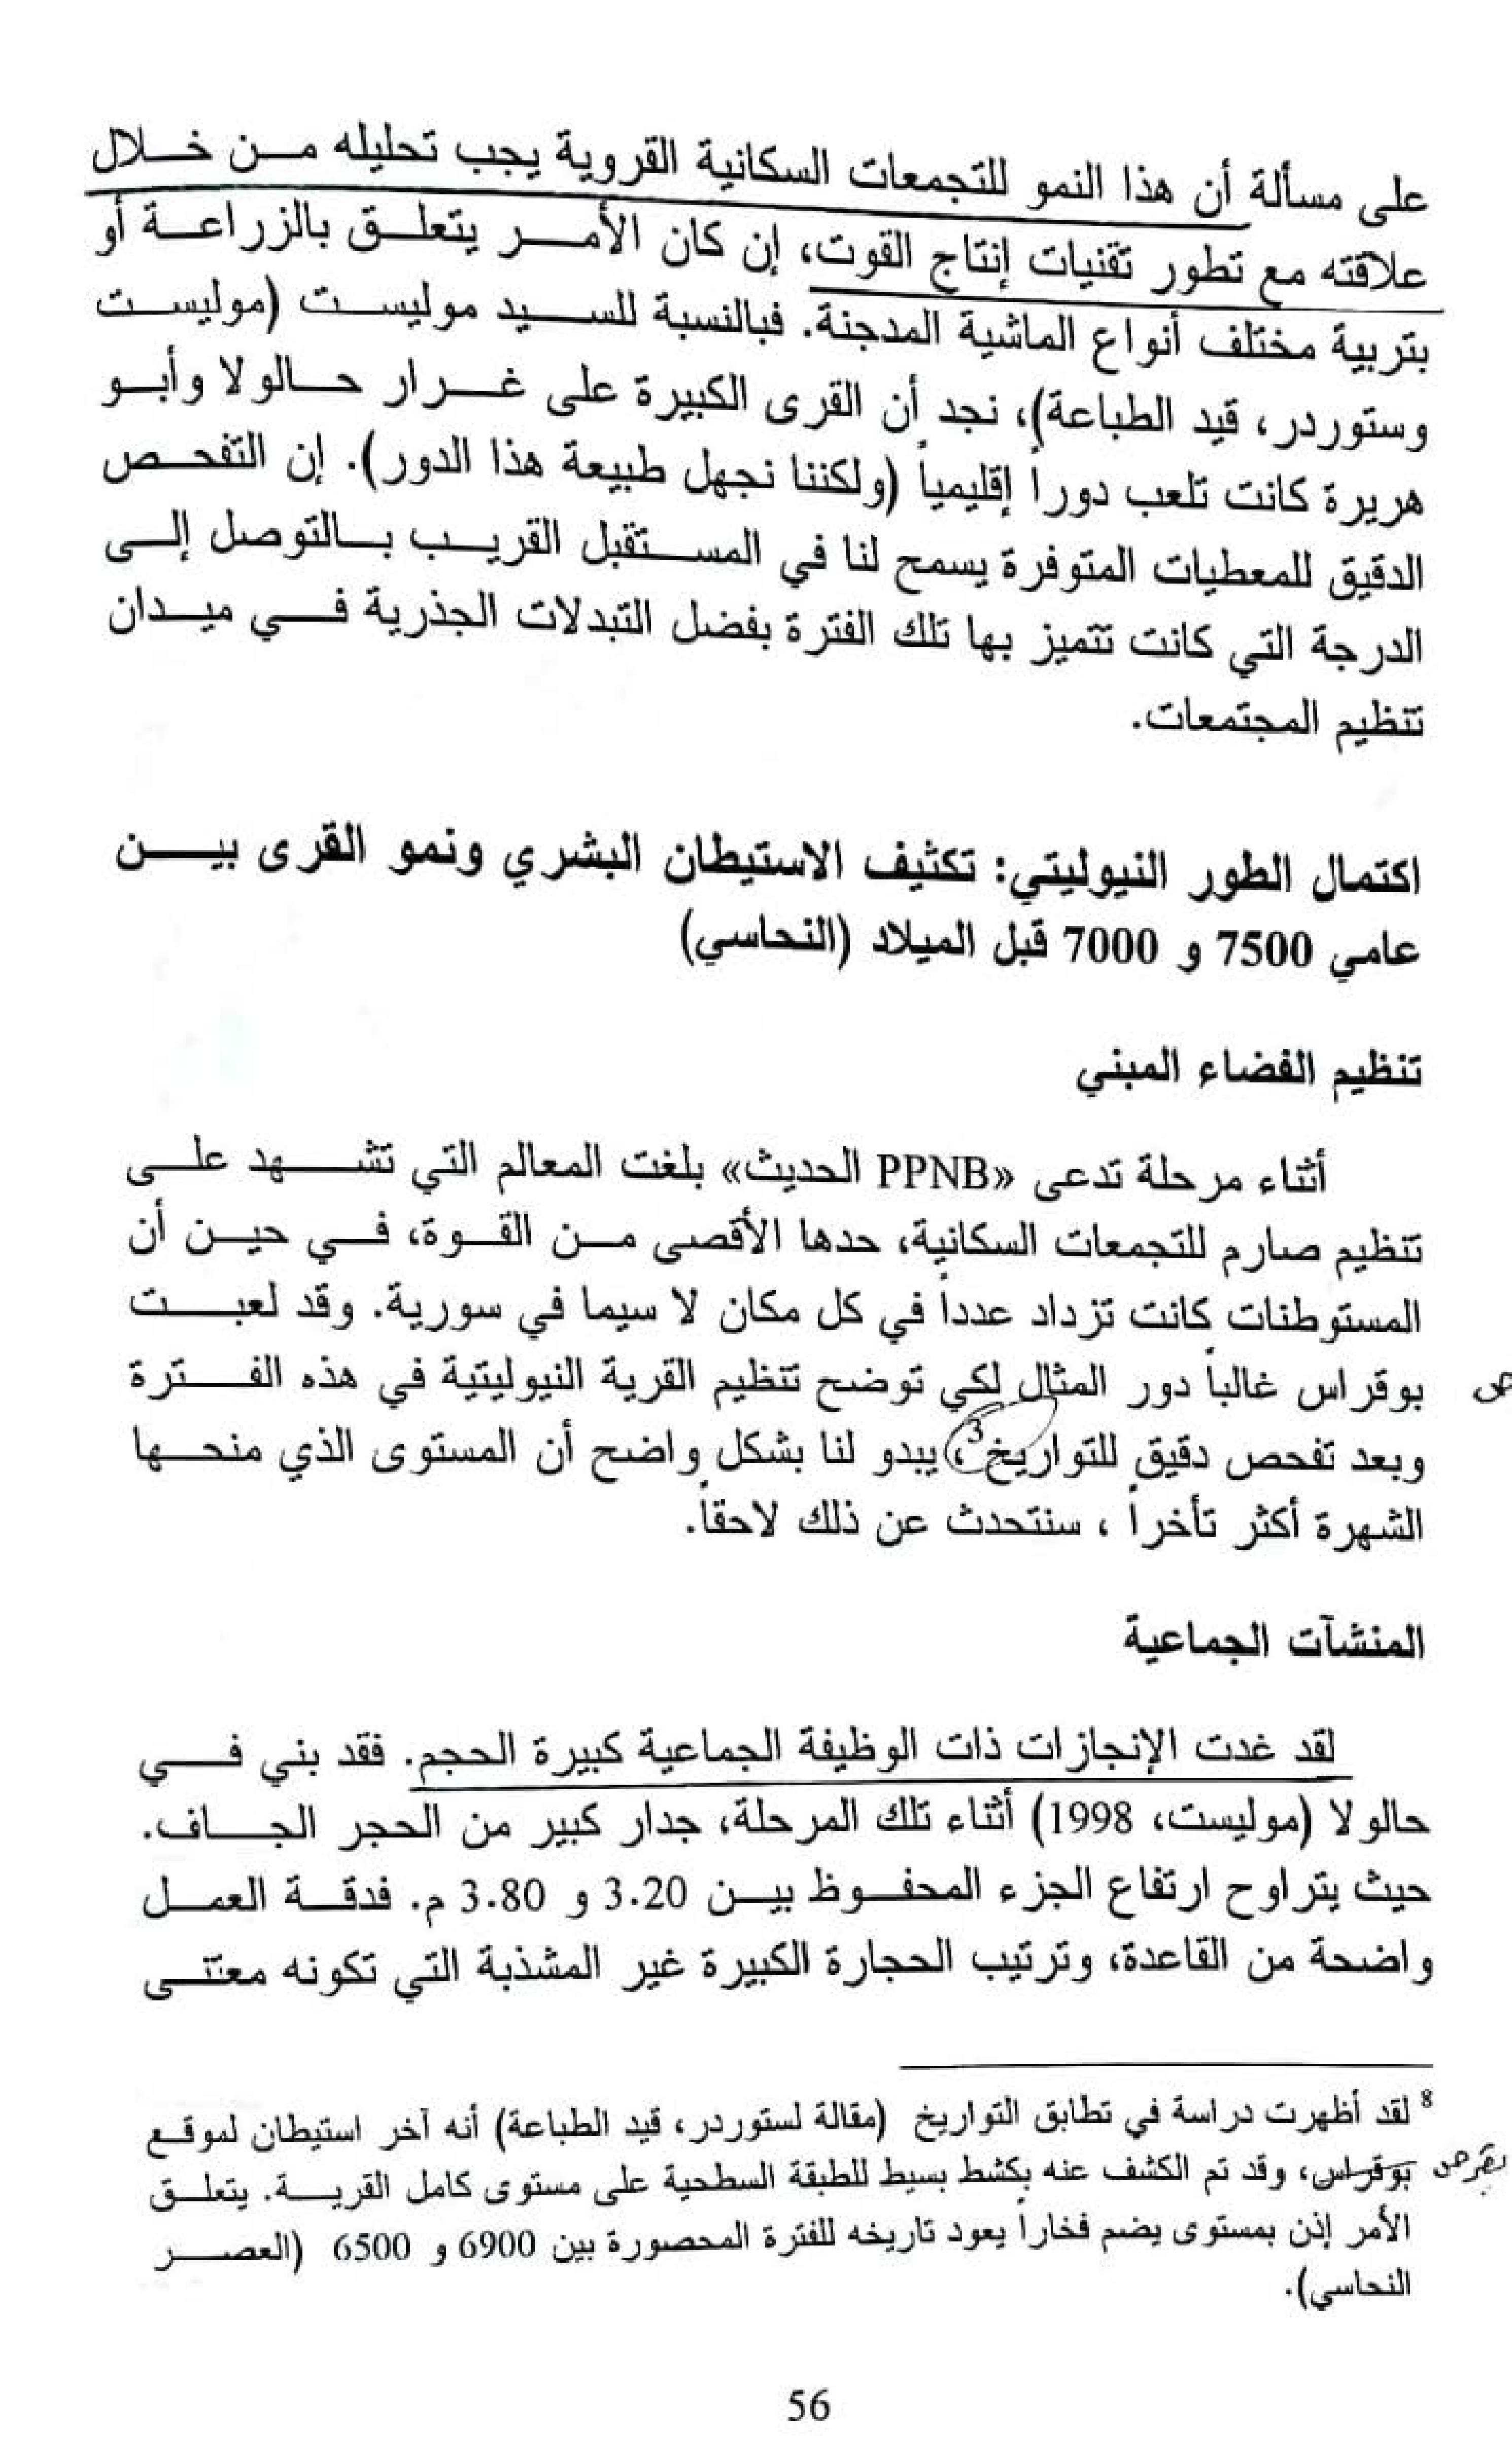 على مسألة أن هذا النمو للتجمعات السكانية القروية يجب تحليله من خلال
علاقته مع تطور تقنيات إنتاج القوت، إن كان الأمر يتعلق بالزراعة أو
بتربية مختلف أنواع الماشية المدجنة. فبالنسبة للسيد موليست (موليست
وستوردر، قيد الطباعة)، نجد أن القرى الكبيرة على غرار حالولا وأبو
هريرة كانت تلعب دوراً إقليمياً (ولكننا نجهل طبيعة هذا الدور). إن التفحص
الدقيق للمعطيات المتوفرة يسمح لنا في المستقبل القريب بالتوصل إلى
الدرجة التي كانت تتميز بها تلك الفترة بفضل التبدلات الجذرية في ميدان
تنظيم المجتمعات.
اكتمال الطور النيوليتي: تكثيف الاستيطان البشري ونمو القرى بين
عامي 7500 و 7000 قبل الميلاد (النحاسي)
تنظيم الفضاء المبني
أثناء مرحلة تدعى «PPNB الحديث» بلغت المعالم التي تشهد على
تنظيم صارم للتجمعات السكانية، حدها الأقصى من القوة، في حين أن
المستوطنات كانت تزداد عدداً في كل مكان لا سيما في سورية. وقد لعبت
بوقراس غالباً دور المثال لكي توضح تنظيم القرية النيوليتية في هذه الفترة ص
وبعد تفحص دقيق للتواريخ3، يبدو لنا بشكل واضح أن المستوى الذي منحها
الشهرة أكثر تأخراً ، سنتحدث عن ذلك لاحقاً.
المنشآت الجماعية
لقد غدت الإنجازات ذات الوظيفة الجماعية كبيرة الحجم. فقد بني في
حالولا (موليست، 1998) أثناء تلك المرحلة، جدار كبير من الحجر الجاف.
حيث يتراوح ارتفاع الجزء المحفوظ بين 3.20 و 3.80 م. فدقة العمل
واضحة من القاعدة، وترتيب الحجارة الكبيرة غير المشذبة التي تكونه معتنى
8 لقد أظهرت دراسة في تطابق التواريخ (مقالة لستوردر، قيد الطباعة) أنه آخر استيطان لموقع
بوقراس، وقد تم الكشف عنه بكشط بسيط للطبقة السطحية على مستوى كامل القرية. يتعلق
الأمر إذن بمستوى يضم فخاراً يعود تاريخه للفترة المحصورة بين 6900 و 6500 (العصر
النحاسي).
56